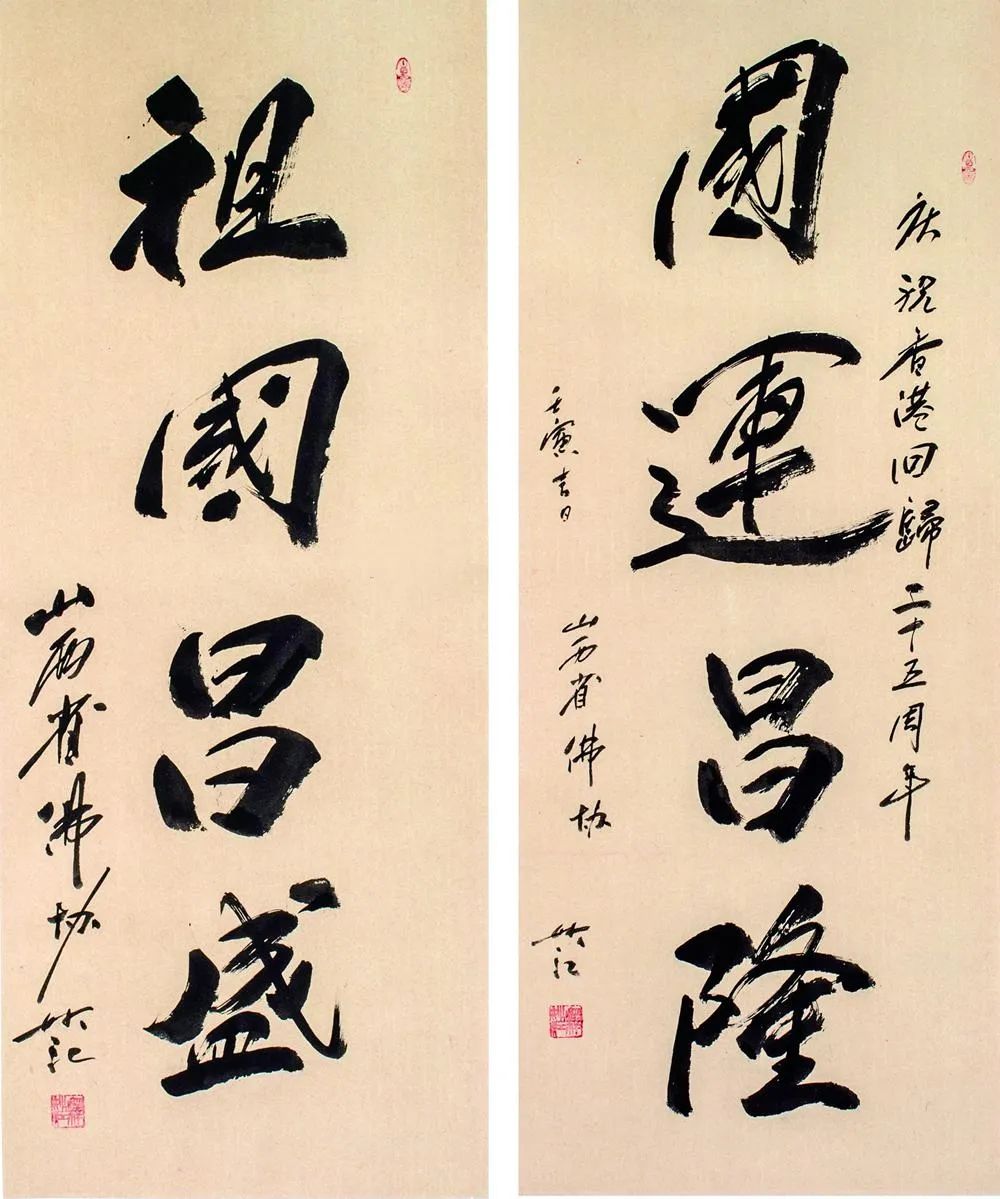 庆祝香港回歸二十五周年
國運昌隆
壬寅吉日 山西省佛协
祖國昌盛
山西省佛协